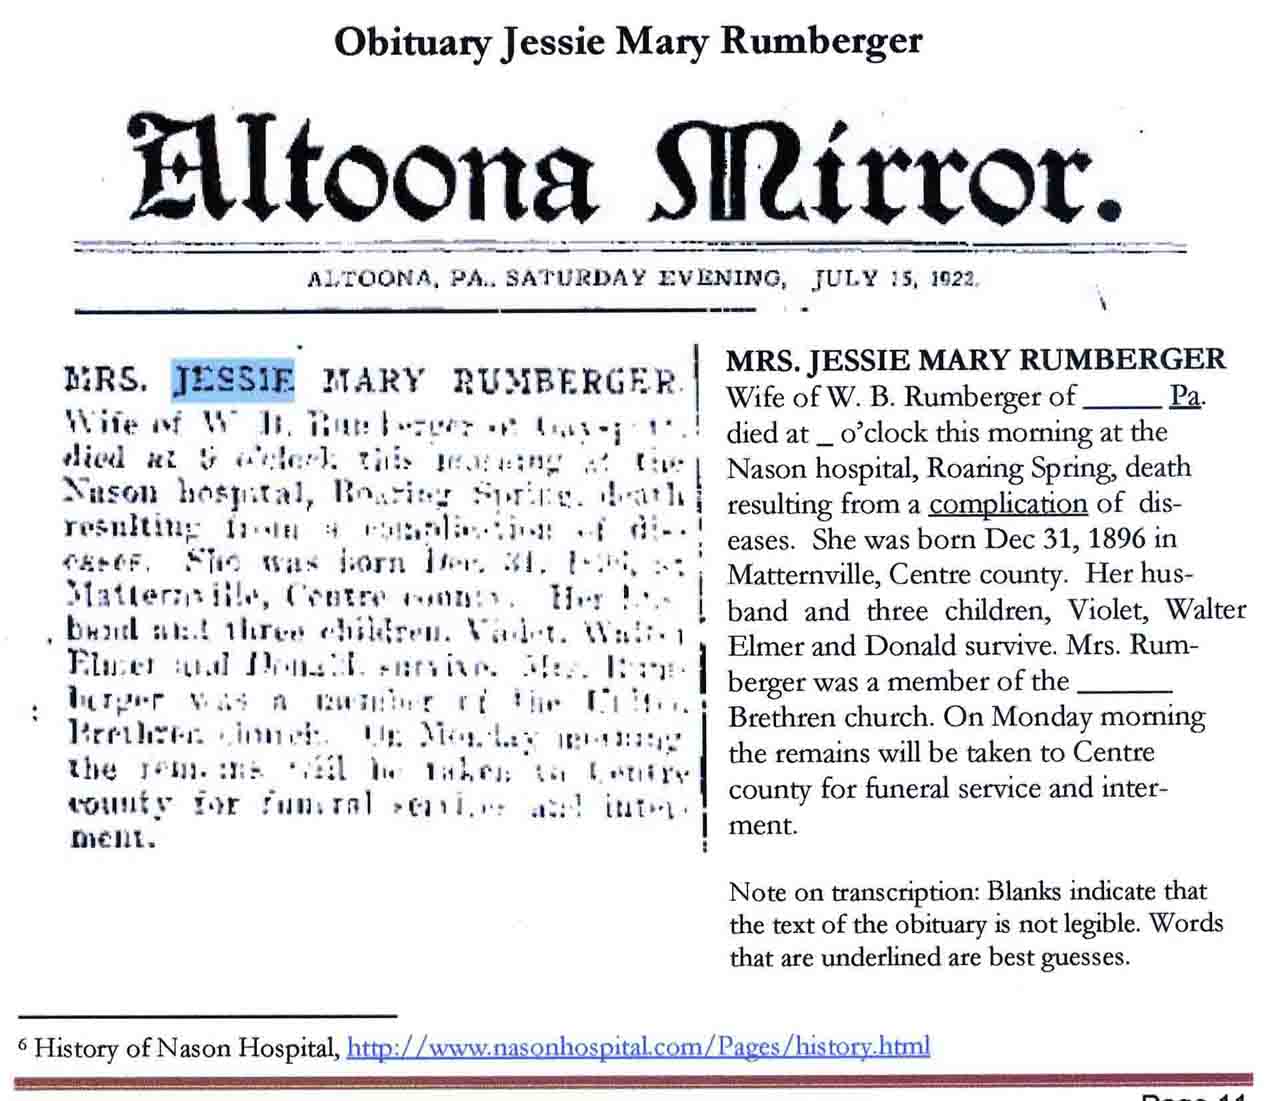 Obituary Jessie Mary Rumberger
Altoona Mirror.
ALTOONA, PA., SATURDAY EVENING, JULY 15, 1922.
MRS. JESSIE MARY RUMBERGER.
Wife of W. B. Rumberger of
died at 5 o'clock this morning at the
Nason hospital, Roaring Spring, death
resulting from a complication of dis-
eases. She was born Dec. 31,
Matternville, Centre county. Her hus-
band and three children, Violet, Walter
Elmer and Donald, survive. Mrs. Rum-
berger was a member of the
Brethren church. On Monday morning
the remains will be taken to Centre
county for funeral service and inter-
ment.
MRS. JESSIE MARY RUMBERGER
Wife of W. B. Rumberger of ______ Pa.
died at _ o'clock this morning at the
Nason hospital, Roaring Spring, death
resulting from a complication of dis-
eases. She was born Dec 31, 1896 in
Matternville, Centre county. Her hus-
band and three children, Violet, Walter
Elmer and Donald survive. Mrs. Rum-
berger was a member of the _______
Brethren church. On Monday morning
the remains will be taken to Centre
county for funeral service and inter-
ment.
Note on transcription: Blanks indicate that
the text of the obituary is not legible. Words
that are underlined are best guesses.
6 History of Nason Hospital, http://www.nasonhospital.com/Pages/history.html
Page 11